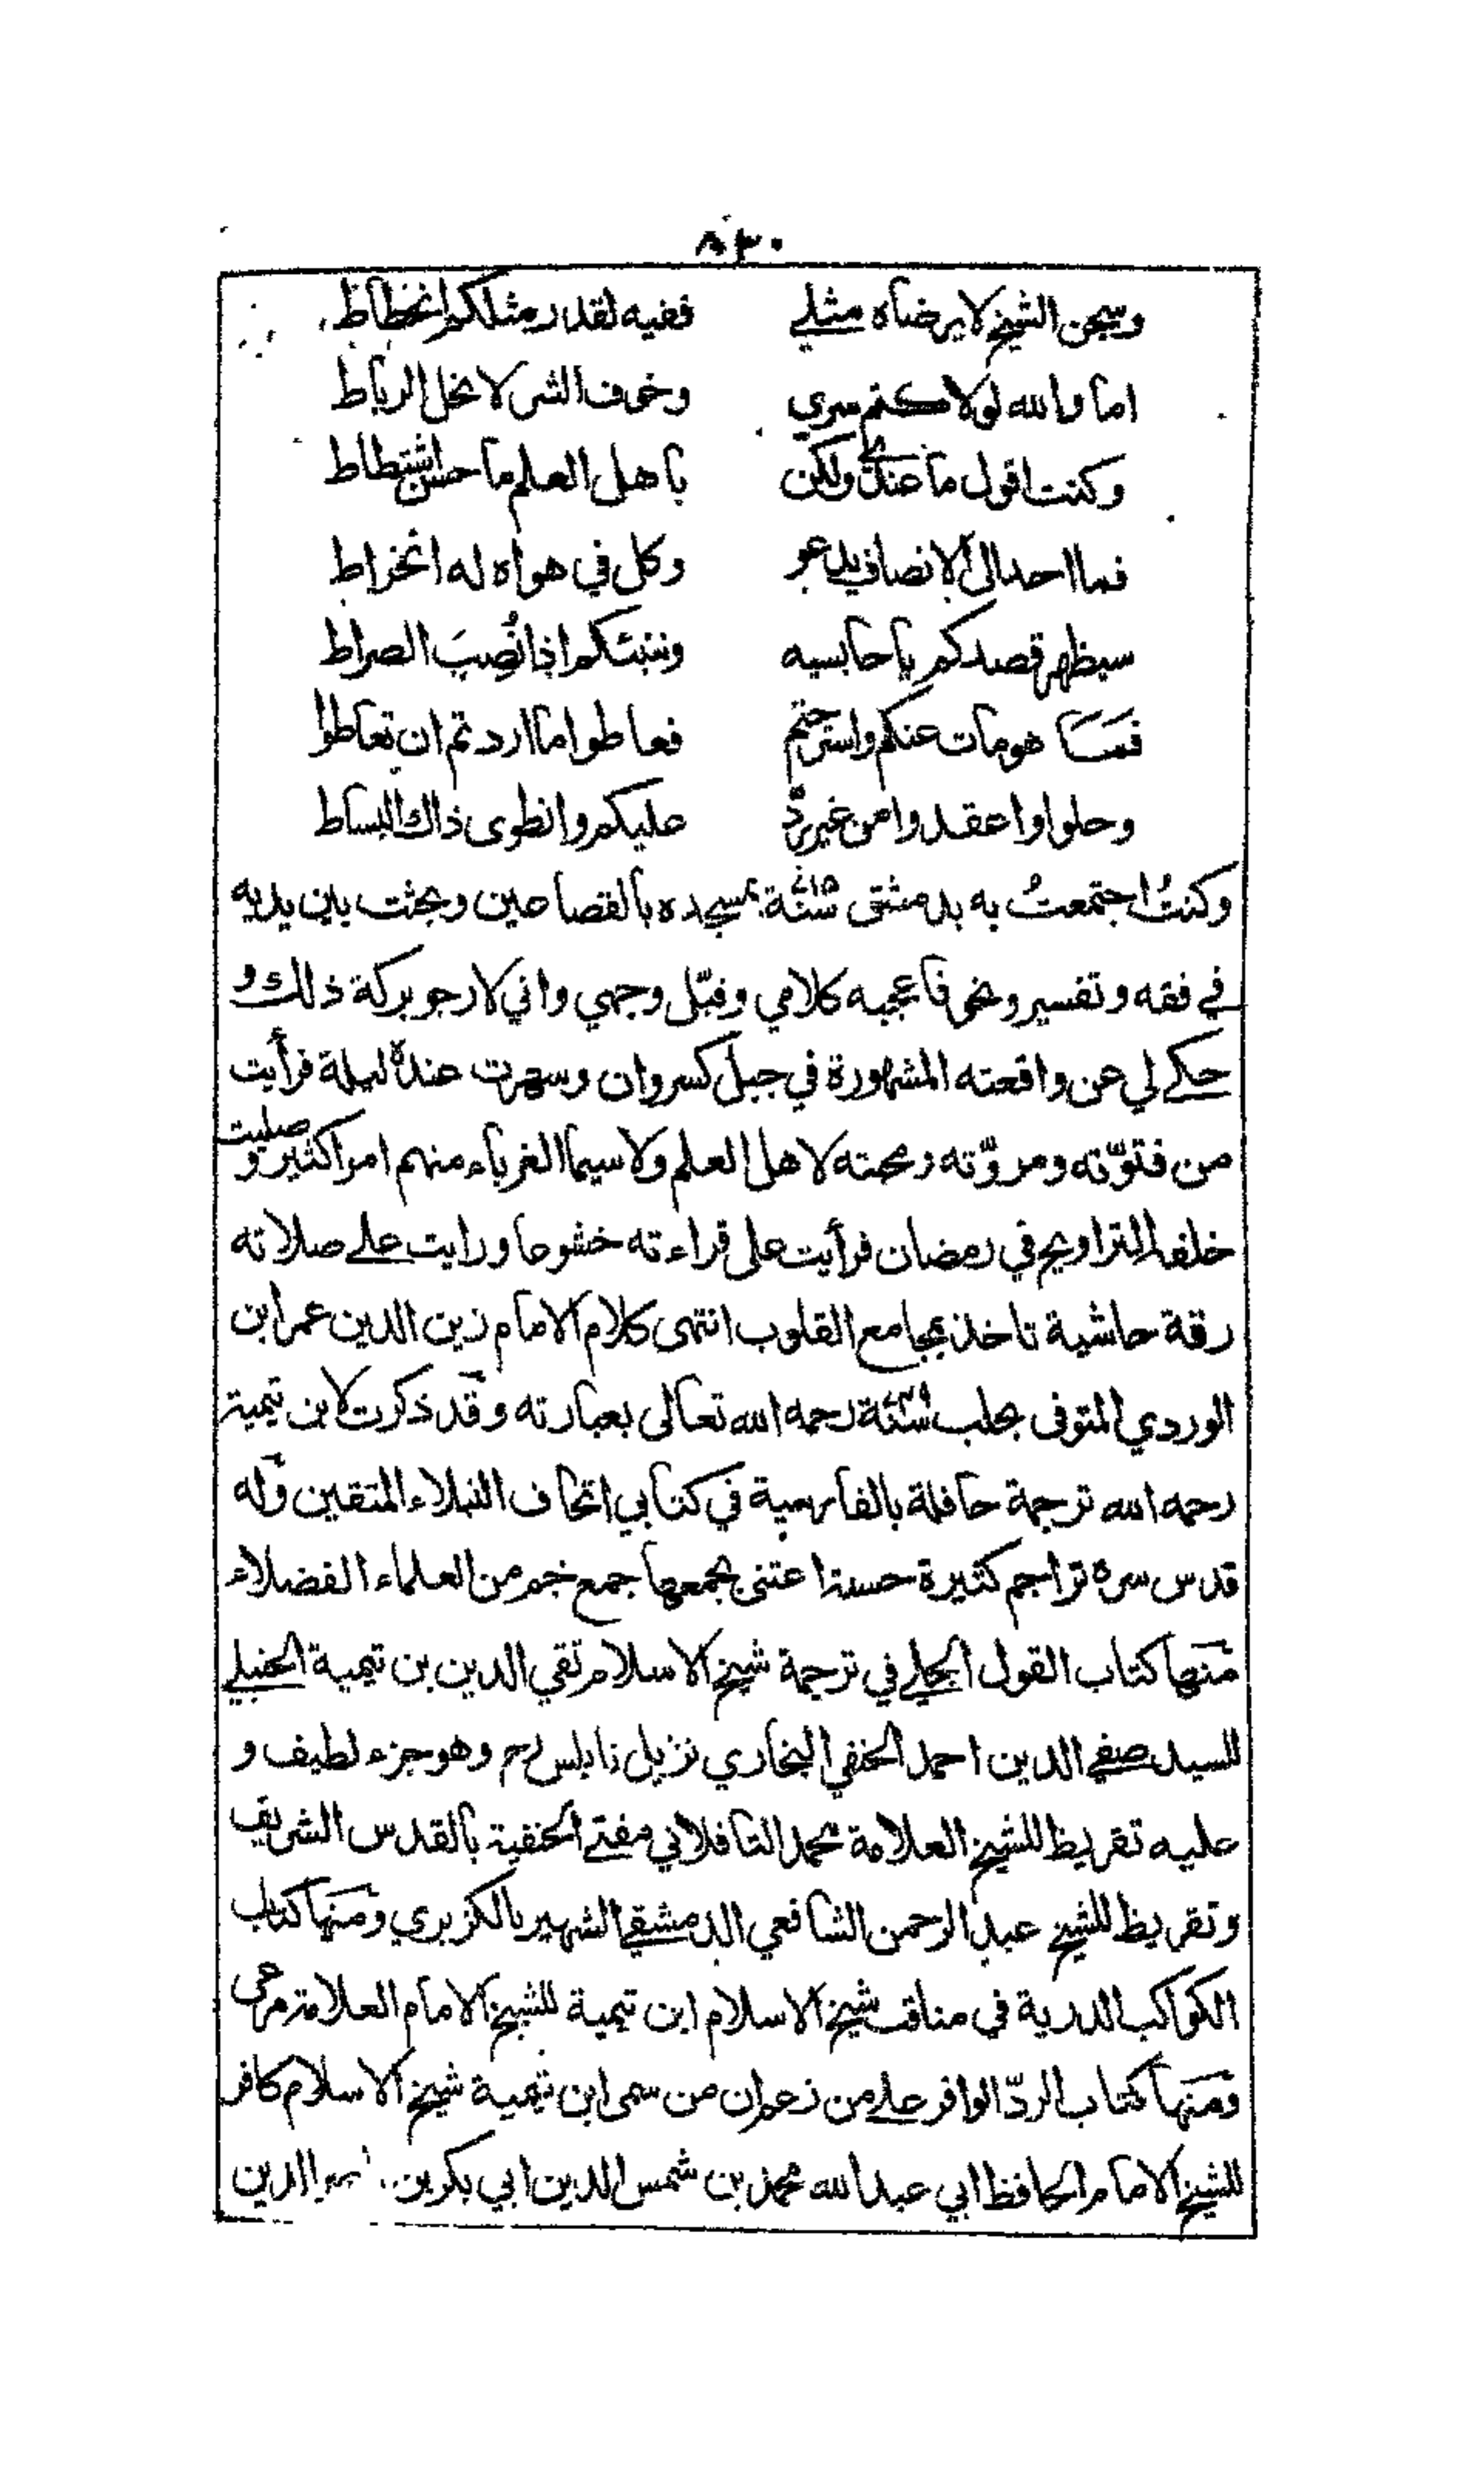 ٨٣٠
وسجن الشيخ لا يرضاه مثلي ففيه لقدر مثلكم انحطاط
اما والله لولا كتم سري وخوف الشر لانحل الرباط
وكنت اقول ما عندي ولكن باهل العلم ما حسن اشتطاط
فما احد الى الانصاف يدعو وكل في هواه له انخراط
سيظهر قصدكم يا حابسيه وننبئكم اذا نُصِبَ الصراط
فها هو مات عنكم واسترحتم فعاطوا ما اردتم ان تعاطوا
وحلوا واعقدوا من غير ردّ عليكم وانطوى ذاك البساط
وكنتُ اجتمعتُ به بدمشق سنة بمسجده بالقصاعين وبحثت بين يديه
في فقه وتفسير ونحو فاعجبه كلامي وقبّل وجهي واني لارجو بركة ذلك و
حكى لي عن واقعته المشهورة في جبل كسروان وسهرت عنده ليلة فرأيت
من فتوّته ومروّته ومحبته لاهل العلم ولا سيما الغرباء منهم امرا كثيرا و صليت
خلفه التراويح في رمضان فرأيت على قراءته خشوعا ورايت على صلاته
رقة حاشية تاخذ بمجامع القلوب انتهى كلام الامام زين الدين عمر ابن
الوردي المتوفى بحلب سنة رحمه الله تعالى بعبارته وقد ذكرت لابن تيمية
رحمه الله ترجمة حافلة بالفارسية في كتابي اتحاف النبلاء المتقين وله
قدس سره تراجم كثيرة حسنة اعتنى بجمعها جمع جم من العلماء الفضلاء
منها كتاب القول الجلي في ترجمة شيخ الاسلام تقي الدين بن تيمية الحنبلي
للسيد صفي الدين احمد الحنفي البخاري نزيل نابلس رح وهو جزء لطيف و
عليه تقريظ للشيخ العلامة محمد التافلاني مفتي الحنفية بالقدس الشريف
وتقريظ للشيخ عبد الرحمن الشافعي الدمشقي الشهير بالكزبري ومنها كتاب
الكواكب الدرية في مناقب شيخ الاسلام ابن تيمية للشيخ الامام العلامة مرعي
ومنها كتاب الردّ الوافر على من زعم ان من سمى ابن تيمية شيخ الاسلام كافر
للشيخ الامام الحافظ ابي عبد الله محمد بن شمس الدين ابي بكر بن الدين